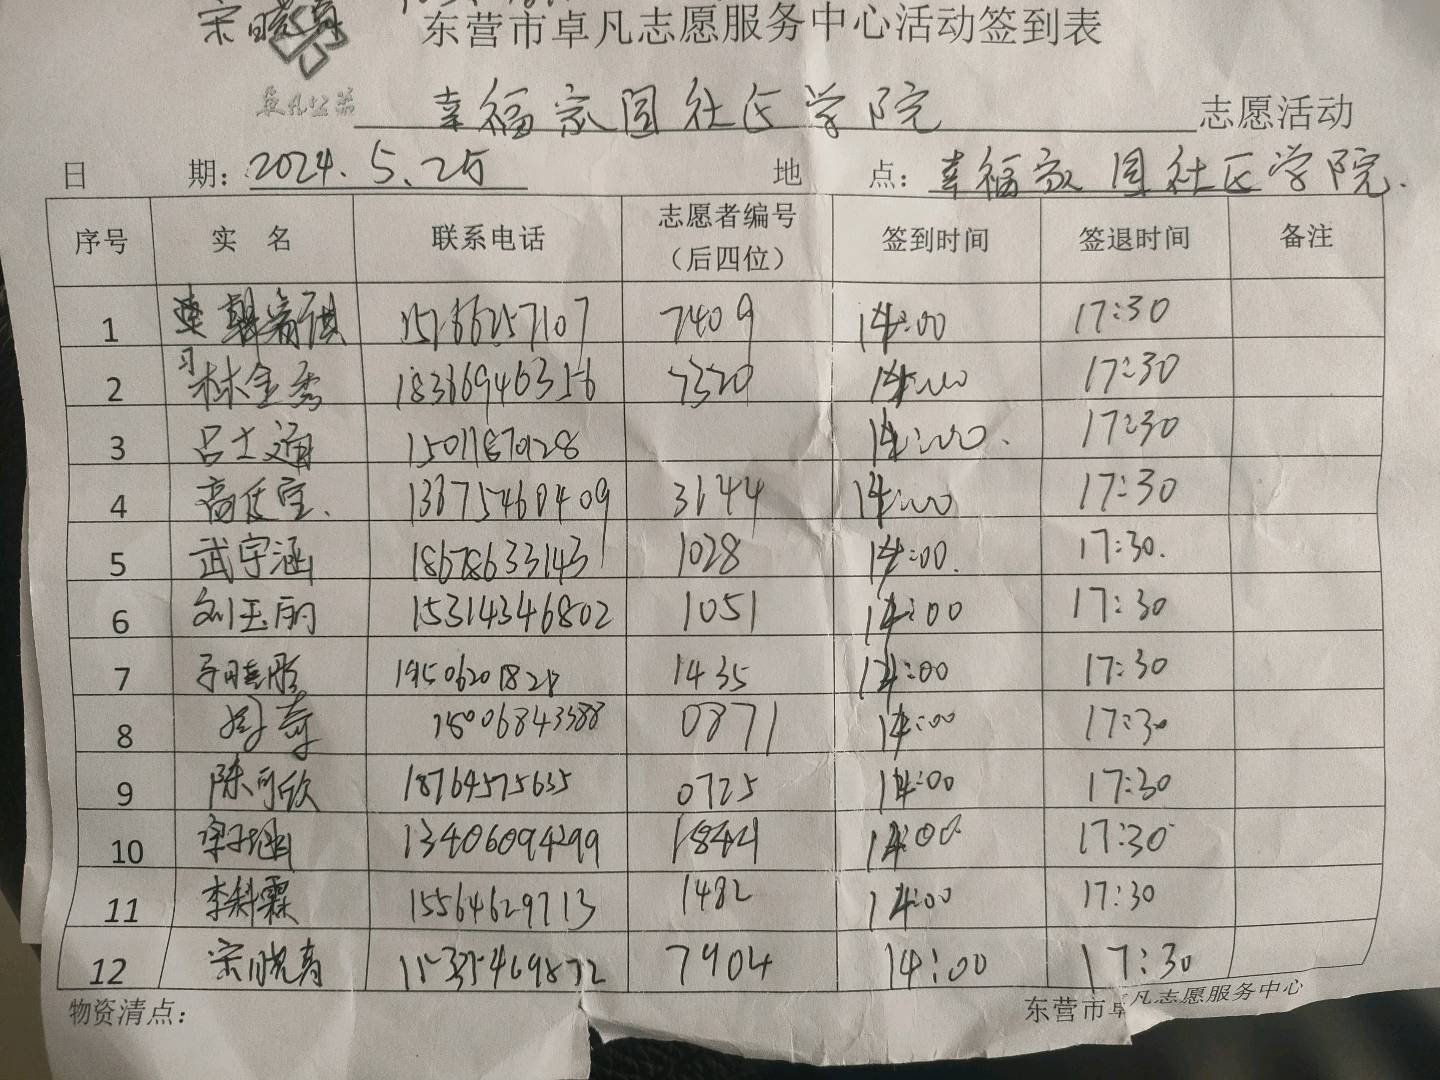 宋晓青
东营市卓凡志愿服务中心活动签到表
卓凡公益 幸福家园社区学院 志愿活动
日 期：2024.5.25 地 点：幸福家园社区学院.
序号 实 名 联系电话 志愿者编号（后四位） 签到时间 签退时间 备注
1 7409 14:00 17:30
2 林金秀 18366946356 7320 14:00 17:30
3 吕士通 14:00. 17:30
4 3144 14:00 17:30
5 武宇涵 18678633143 1028 14:00. 17:30.
6 刘玉丽 15314346802 1051 14:00 17:30
7 1435 14:00 17:30
8 15006843588 0871 14:00 17:30
9 陈可欣 18764575635 0725 14:00 17:30
10 13406094299 1844 14:00 17:30
11 李科霖 15564629713 1482 14:00 17:30
12 宋晓青 7904 14:00 17:30
物资清点： 东营市卓凡志愿服务中心